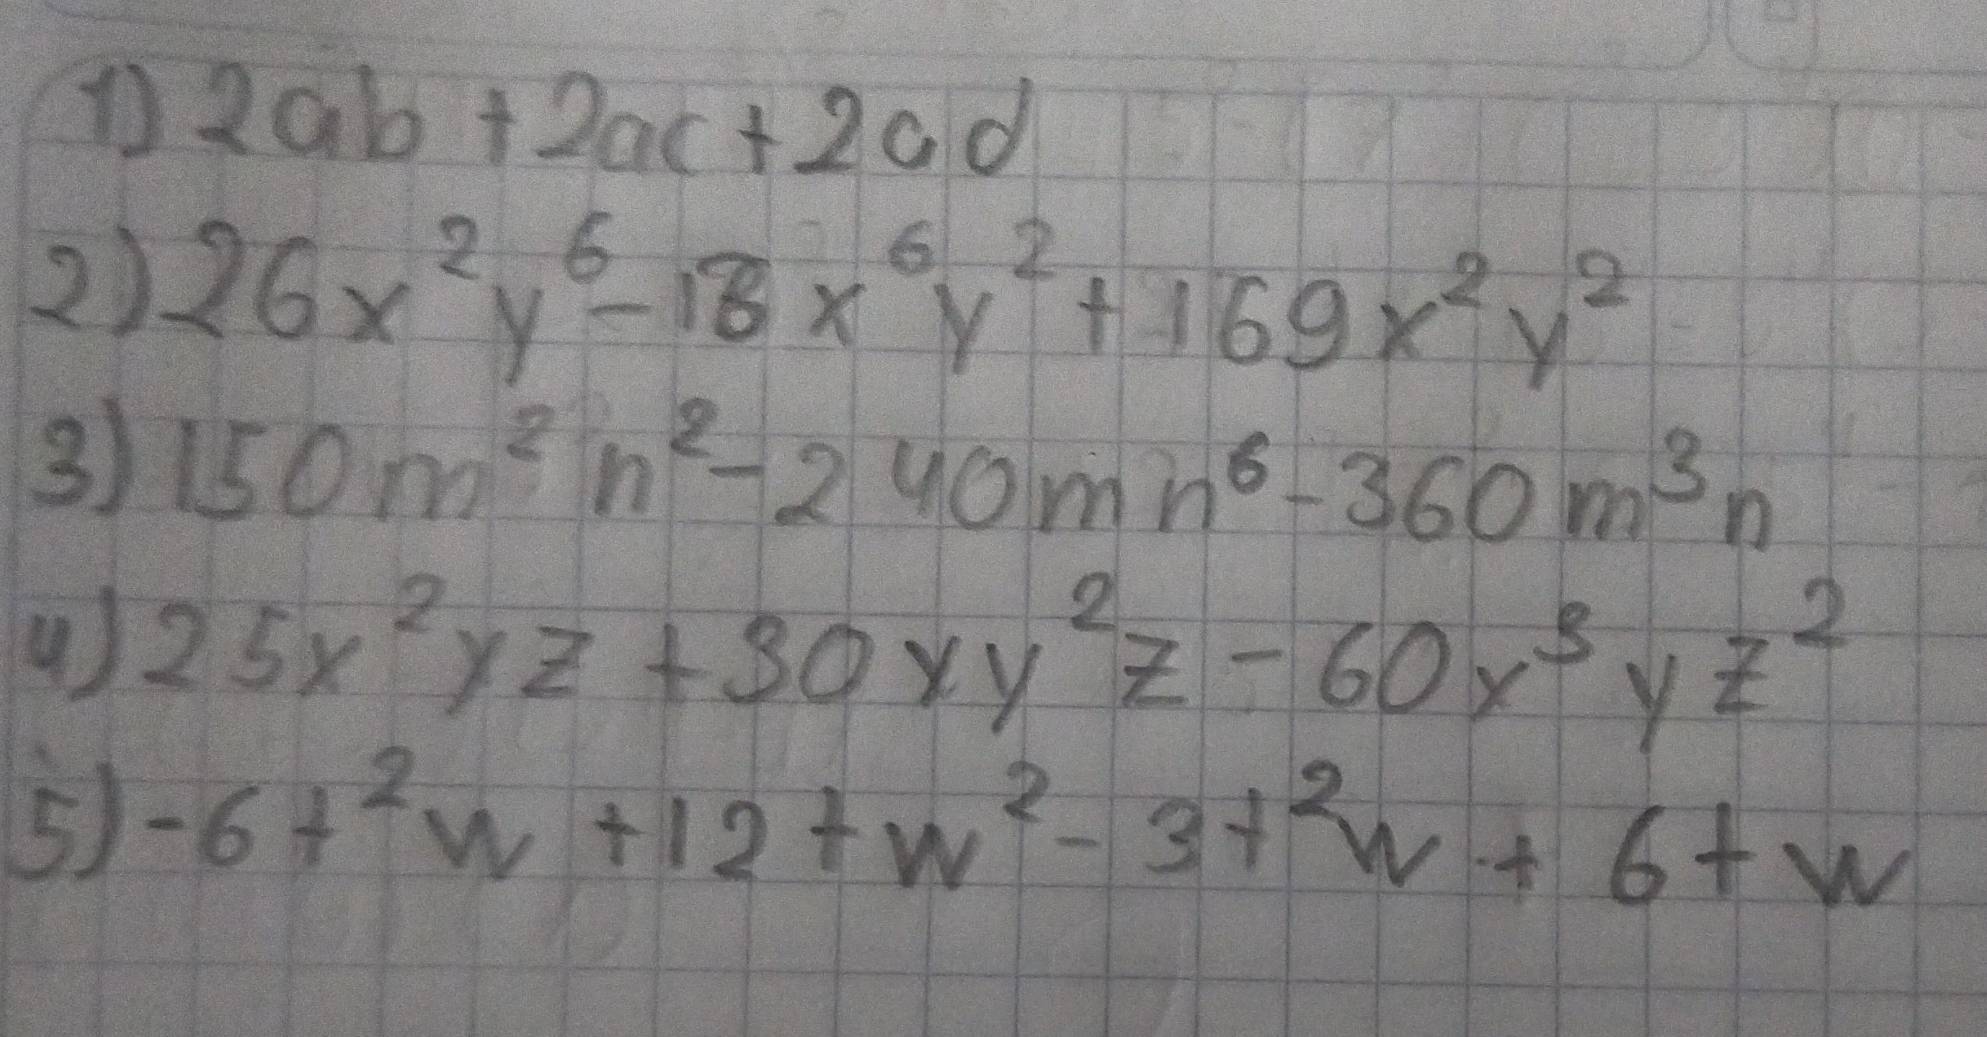 1) 2ab + 2ac + 2ad
2) 26x²y⁶ - 18x⁶y² + 169x²y²
3) 150m²n² - 240mn⁶ - 360m³n
4) 25x²yz + 30xy²z - 60x³yz²
5) -6t²w + 12tw² - 3t²w + 6tw